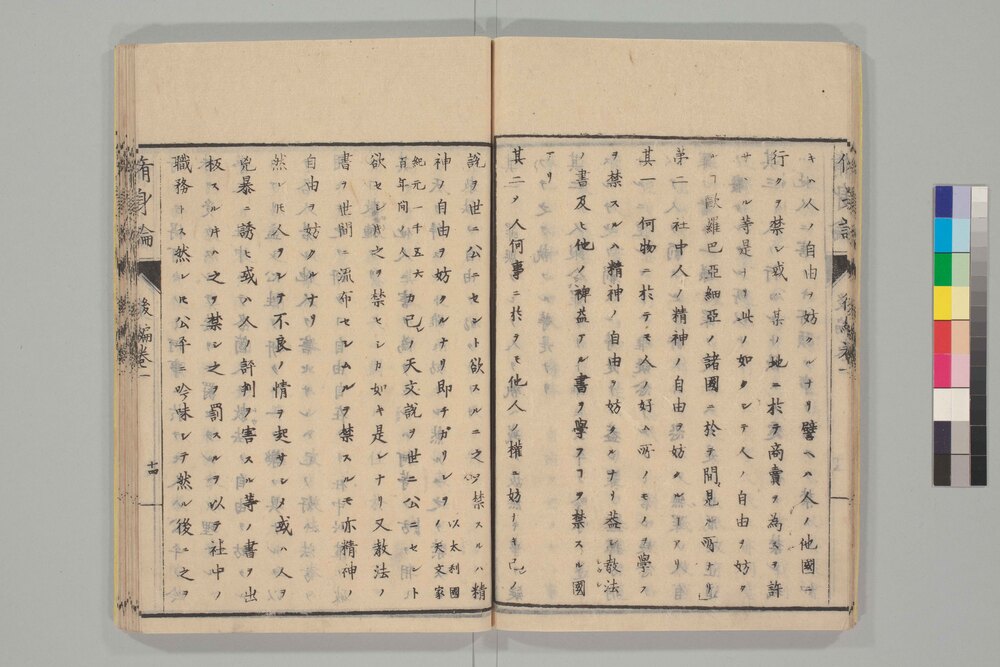 キハ人ノ自由ヲ妨クルナリ譬ヘハ人ノ他國ニ
行クヲ禁シ或ハ某ノ地ニ於テ商賣ヲ為スヲ許
サヽル等是ナリ此ノ如クシテ人ノ自由ヲ妨クル
ヿ歐羅巴亞細亞ノ諸國ニ於テ間見ル所ナリ
第二 社中人ノ精神ノ自由ヲ妨クル二アリ
其一 何物ニ於テモ人ノ好ム所ノモノヲ學フ
ヲ禁スルハ精神ノ自由ヲ妨クルナリ蓋シ教法
ノ書及ヒ他ノ裨益アル書ヲ學フヿヲ禁スル國
アリ
其二 人何事ニ於テモ他人ノ權ニ妨ナキ己ノ
說ヲ世ニ公ニセント欲スルニ之ヲ禁スルハ精
神ノ自由ヲ妨クルナリ即チガリレヲ以太利國ノ天文家
紀元一千五六百年間ノ人カ己ノ天文說ヲ世ニ公ニセント
欲セシ時之ヲ禁セシカ如キ是レナリ又教法ノ
書ヲ世間ニ流布セシムルヲ禁スルモ亦精神ノ
自由ヲ妨クルナリ
然レ𪜈人ヲシテ不良ノ情ヲ起サシメ或ハ人ヲ
兇暴ニ誘ヒ或ハ人ノ評判ヲ害スル等ノ書ヲ出
板スル片ハ之ヲ禁シ之ヲ罰スルヲ以テ社中ノ
職務トス然レ𪜈公平ニ吟味シテ然ル後ニ之ヲ
脩身論
後編卷一
十四